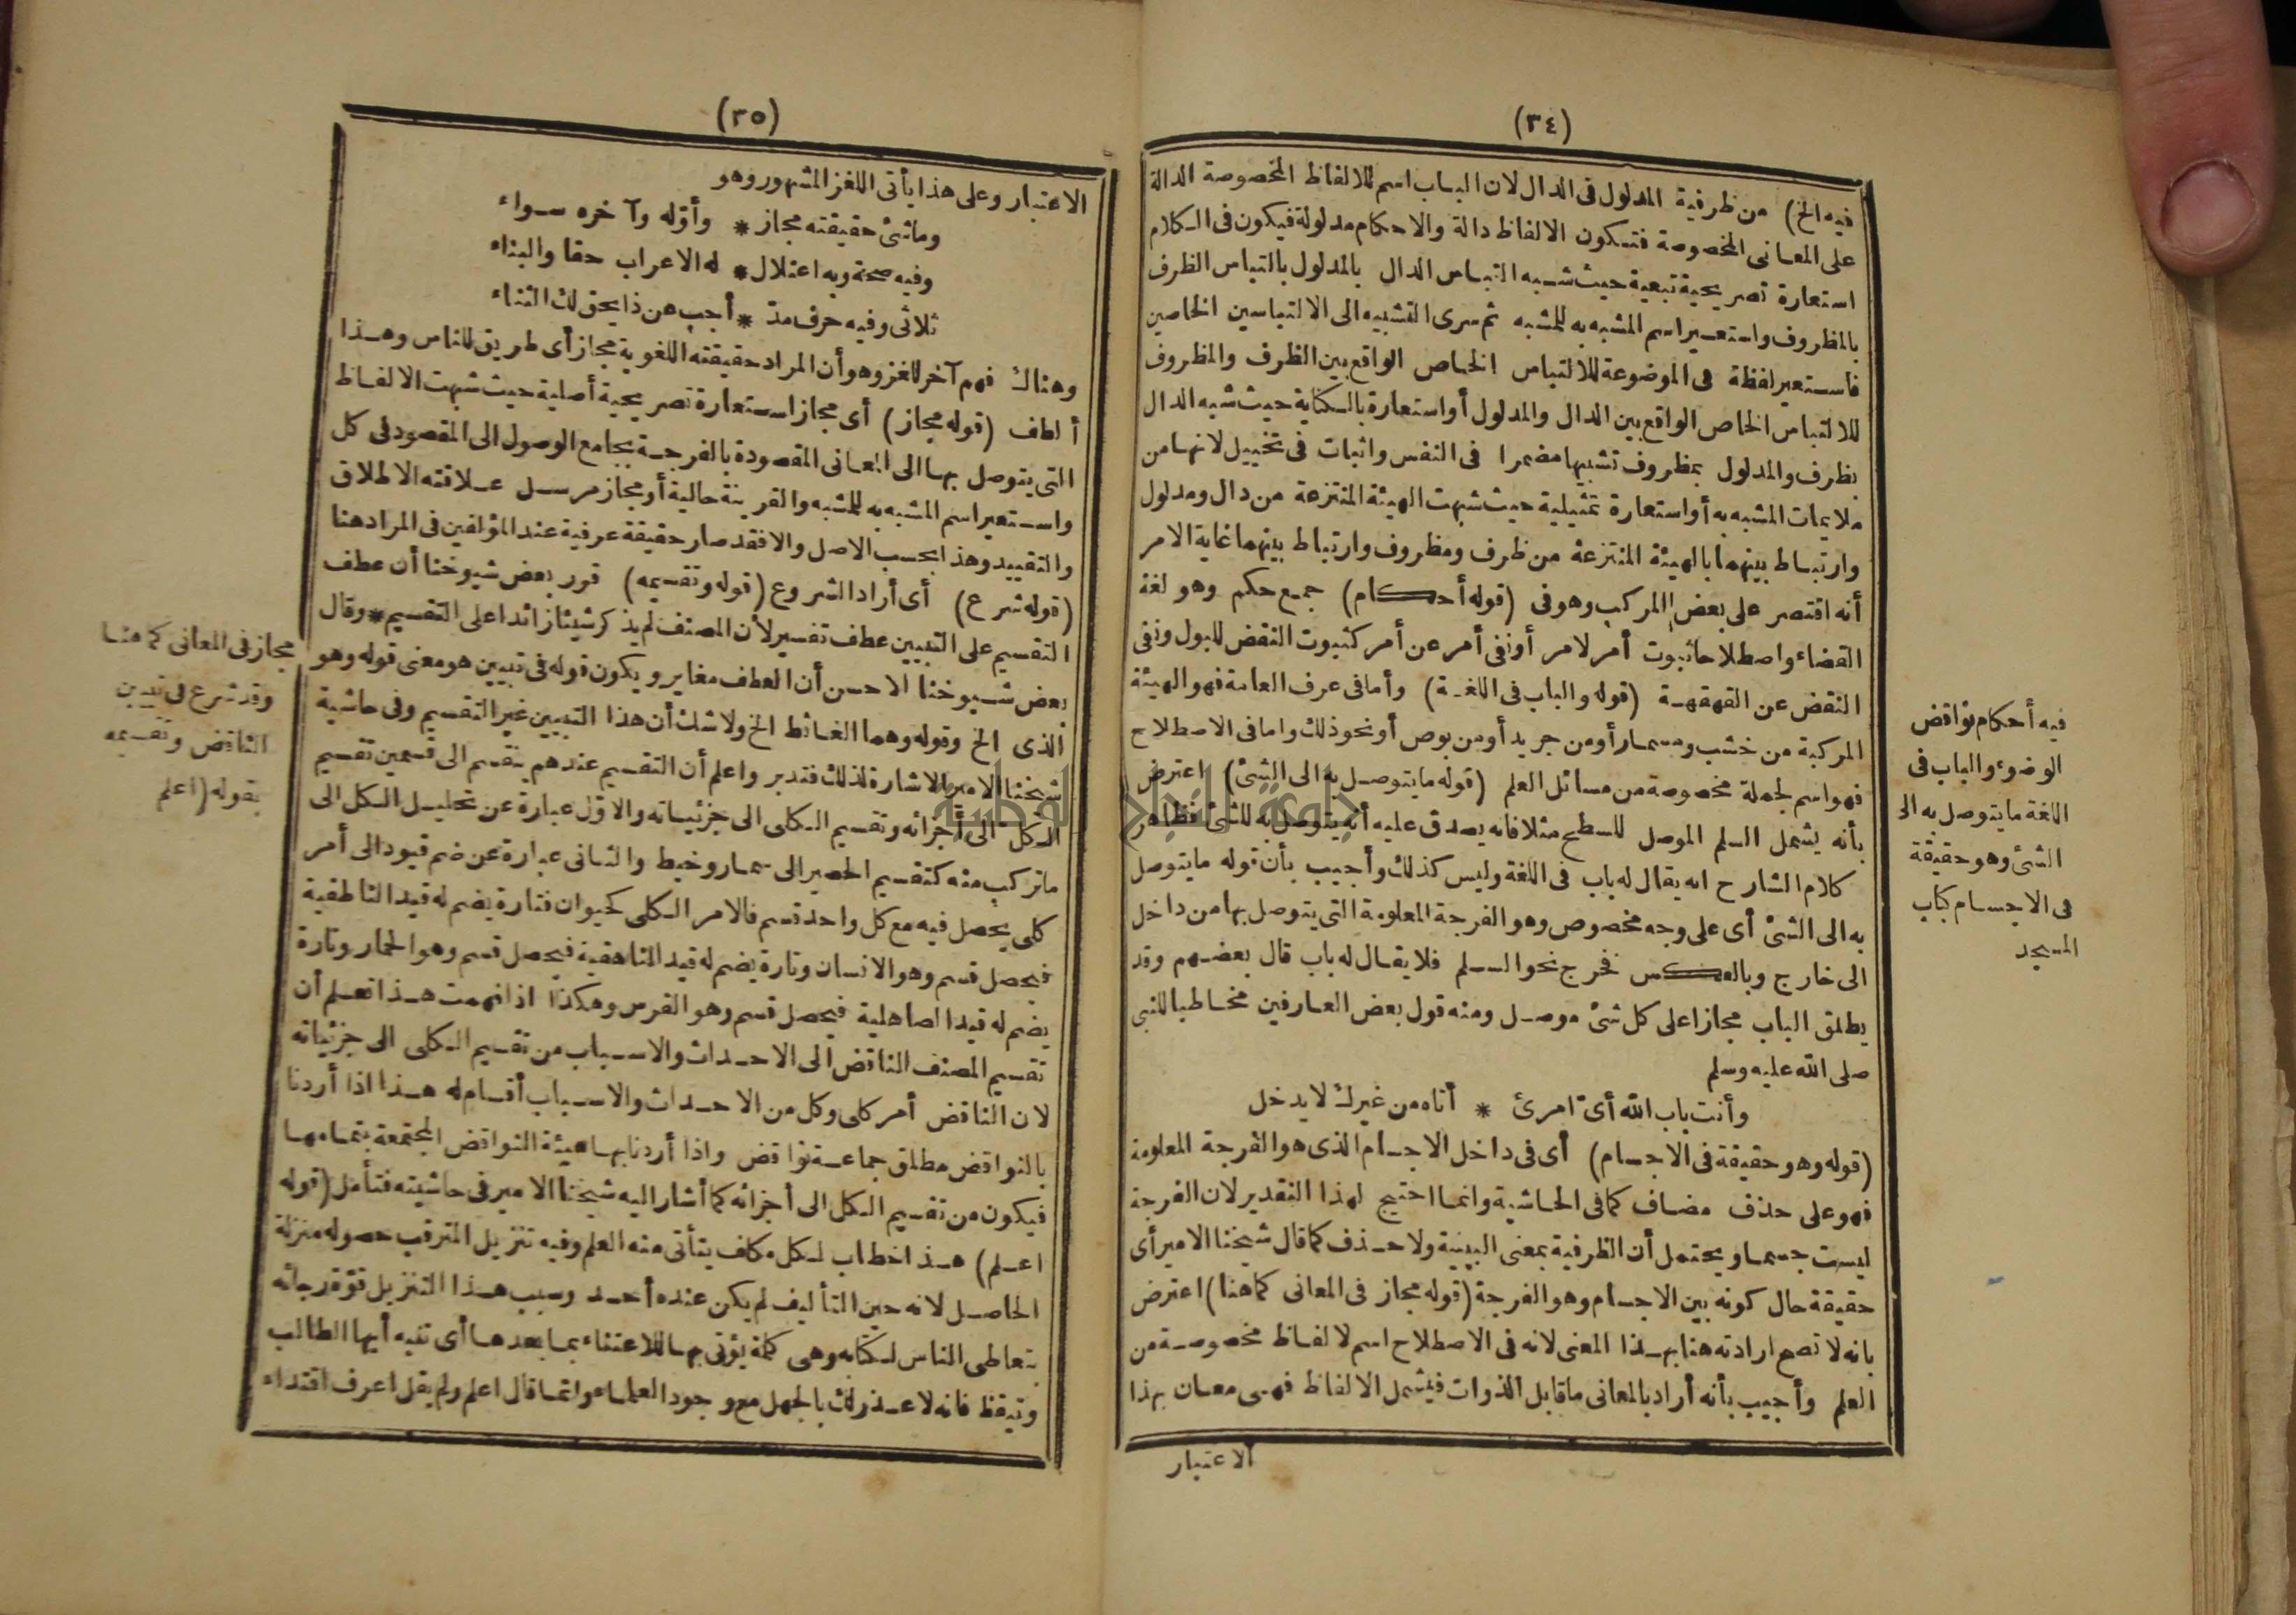 (٣٤)
فيه الخ) من ظرفية المدلول فى الدال لان الباب اسم للالفاظ المخصوصة الدالة
على المعانى المخصوصة فتكون الالفاظ دالة والاحكام مدلولة فيكون فى الكلام
استعارة تصريحية تبعية حيث شبه التباس الدال بالمدلول بالتباس الظرف
بالمظروف واستعير اسم المشبه به للمشبه ثم سرى التشبيه الى الالتباسين الخاصين
فاستعير لفظة فى الموضوعة للالتباس الخاص الواقع بين الظرف والمظروف
للالتباس الخاص الواقع بين الدال والمدلول أو استعارة بالكناية حيث شبه الدال
بظرف والمدلول بمظروف تشبيها مضمرا فى النفس واثبات فى تخييل لانها من
ملايمات المشبه به أو استعارة تمثيلية حيث شبهت الهيئة المنتزعة من دال ومدلول
وارتباط بينهما بالهيئة المنتزعة من ظرف ومظروف وارتباط بينهما غاية الامر
أنه اقتصر على بعض المركب وهو فى (قوله أحكام) جمع حكم وهو لغة
القضاء واصطلاحا ثبوت أمر لامر أو نفى أمر عن أمر كثبوت النقض للبول ونفى
النقض عن القهقهة (قوله والباب فى اللغة) وأما فى عرف العامة فهو الهيئة
المركبة من خشب ومسمار أو من جريد أو من بوص أو نحو ذلك واما فى الاصطلاح
فهو اسم لجملة مخصوصة من مسائل العلم (قوله ما يتوصل به الى الشئ) اعترض
بأنه يشمل السلم الموصل للسطح مثلا فانه يصدق عليه أنه يتوصل به للشئ فظاهر
كلام الشارح انه يقال له باب فى اللغة وليس كذلك وأجيب بأن قوله ما يتوصل
به الى الشئ أى على وجه مخصوص وهو الفرجة المعلومة التى يتوصل بها من داخل
الى خارج وبالعكس فخرج نحو السلم فلا يقال له باب قال بعضهم وقد
يطلق الباب مجازا على كل شئ موصل ومنه قول بعض العارفين مخاطبا للنبى
صلى الله عليه وسلم
وأنت باب الله أىّ امرئ * أتاه من غيرك لا يدخل
(قوله وهو حقيقة فى الاجسام) أى فى داخل الاجسام الذى هو الفرجة المعلومة
فهو على حذف مضاف كما فى الحاشية وانما احتيج لهذا التقدير لان الفرجة
ليست جسما ويحتمل أن الظرفية بمعنى البينية ولا حذف كما قال شيخنا الامير أى
حقيقة حال كونه بين الاجسام وهو الفرجة (قوله مجاز فى المعانى كما هنا) اعترض
بانه لا تصح ارادته هنا بهذا المعنى لانه فى الاصطلاح اسم لالفاظ مخصوصة من
العلم وأجيب بأنه أراد بالمعانى ما قابل الذوات فيشمل الالفاظ فهى معان بهذا
الاعتبار
فيه أحكام نواقض
الوضوء والباب فى
اللغة ما يتوصل به الى
الشئ وهو حقيقة
فى الاجسام كباب
المسجد
(٣٥)
الاعتبار وعلى هذا يأتى اللغز المشهور وهو
وما شئ حقيقته مجاز * وأوّله وآخره سواء
وفيه صحة وبه اعتلال * له الاعراب حقا والبناء
ثلاثى وفيه حرف مدّ * أجب عن ذا يحق لك الثناء
وهناك فهم آخر للغز وهو أن المراد حقيقته اللغوية مجاز أى طريق للناس وهذا
ألطف (قوله مجاز) أى مجاز استعارة تصريحية أصلية حيث شبهت الالفاظ
التى يتوصل بها الى المعانى المقصودة بالفرجة بجامع الوصول الى المقصود فى كل
واستعير اسم المشبه به للمشبه والقرينة حالية أو مجاز مرسل علاقته الاطلاق
والتقييد وهذا بحسب الاصل والا فقد صار حقيقة عرفية عند المؤلفين فى المراد هنا
(قوله شرع) أى أراد الشروع (قوله وتقسيمه) قرر بعض شيوخنا أن عطف
التقسيم على التبيين عطف تفسير لأن المصنف لم يذكر شيئا زائدا على التقسيم * وقال
بعض شيوخنا الاحسن أن العطف مغاير ويكون قوله فى تبيين هو معنى قوله وهو
الذى الخ وقوله وهما الغائط الخ ولا شك أن هذا التبيين غير التقسيم وفى حاشية
شيخنا الامير الاشارة لذلك فتدبر واعلم أن التقسيم عندهم ينقسم الى قسمين تقسيم
الكل الى أجزائه وتقسيم الكلى الى جزئياته والاوّل عبارة عن تحليل الكل الى
ما تركب منه كتقسيم الحصير الى سمار وخيط والثانى عبارة عن ضم قيود الى أمر
كلى يحصل فيه مع كل واحد قسم فالامر الكلى كحيوان فتارة يضم له قيد الناطقية
فيحصل قسم وهو الانسان وتارة يضم له قيد الناهقية فيحصل قسم وهو الحمار وتارة
يضم له قيد الصاهلية فيحصل قسم وهو الفرس وهكذا اذا فهمت هذا تعلم أن
تقسيم المصنف الناقض الى الاحداث والاسباب من تقسيم الكلى الى جزئياته
لان الناقض أمر كلى وكل من الاحداث والاسباب أقسام له هذا اذا أردنا
بالنواقض مطلق جماعة نواقض واذا أردنا بها هيئة النواقض المجتمعة بتمامها
فيكون من تقسيم الكل الى أجزائه كما أشار اليه شيخنا الامير فى حاشيته فتأمل (قوله
اعلم) هذا خطاب لكل مكلف يتأتى منه العلم وفيه تنزيل المترقب حصوله منزلة
الحاصل لانه حين التأليف لم يكن عنده أحد وسبب هذا التنزيل قوّة رجائه
بتعاطى الناس لكتابه وهى كلمة يؤتى بها للاعتناء بما بعدها أى تنبه أيها الطالب
وتيقظ فانه لا عذر لك بالجهل مع وجود العلماء وانما قال اعلم ولم يقل اعرف اقتداء
مجاز فى المعانى كما هنا
وقد شرع فى تبيين
الناقض وتقسيمه
بقوله (اعلم